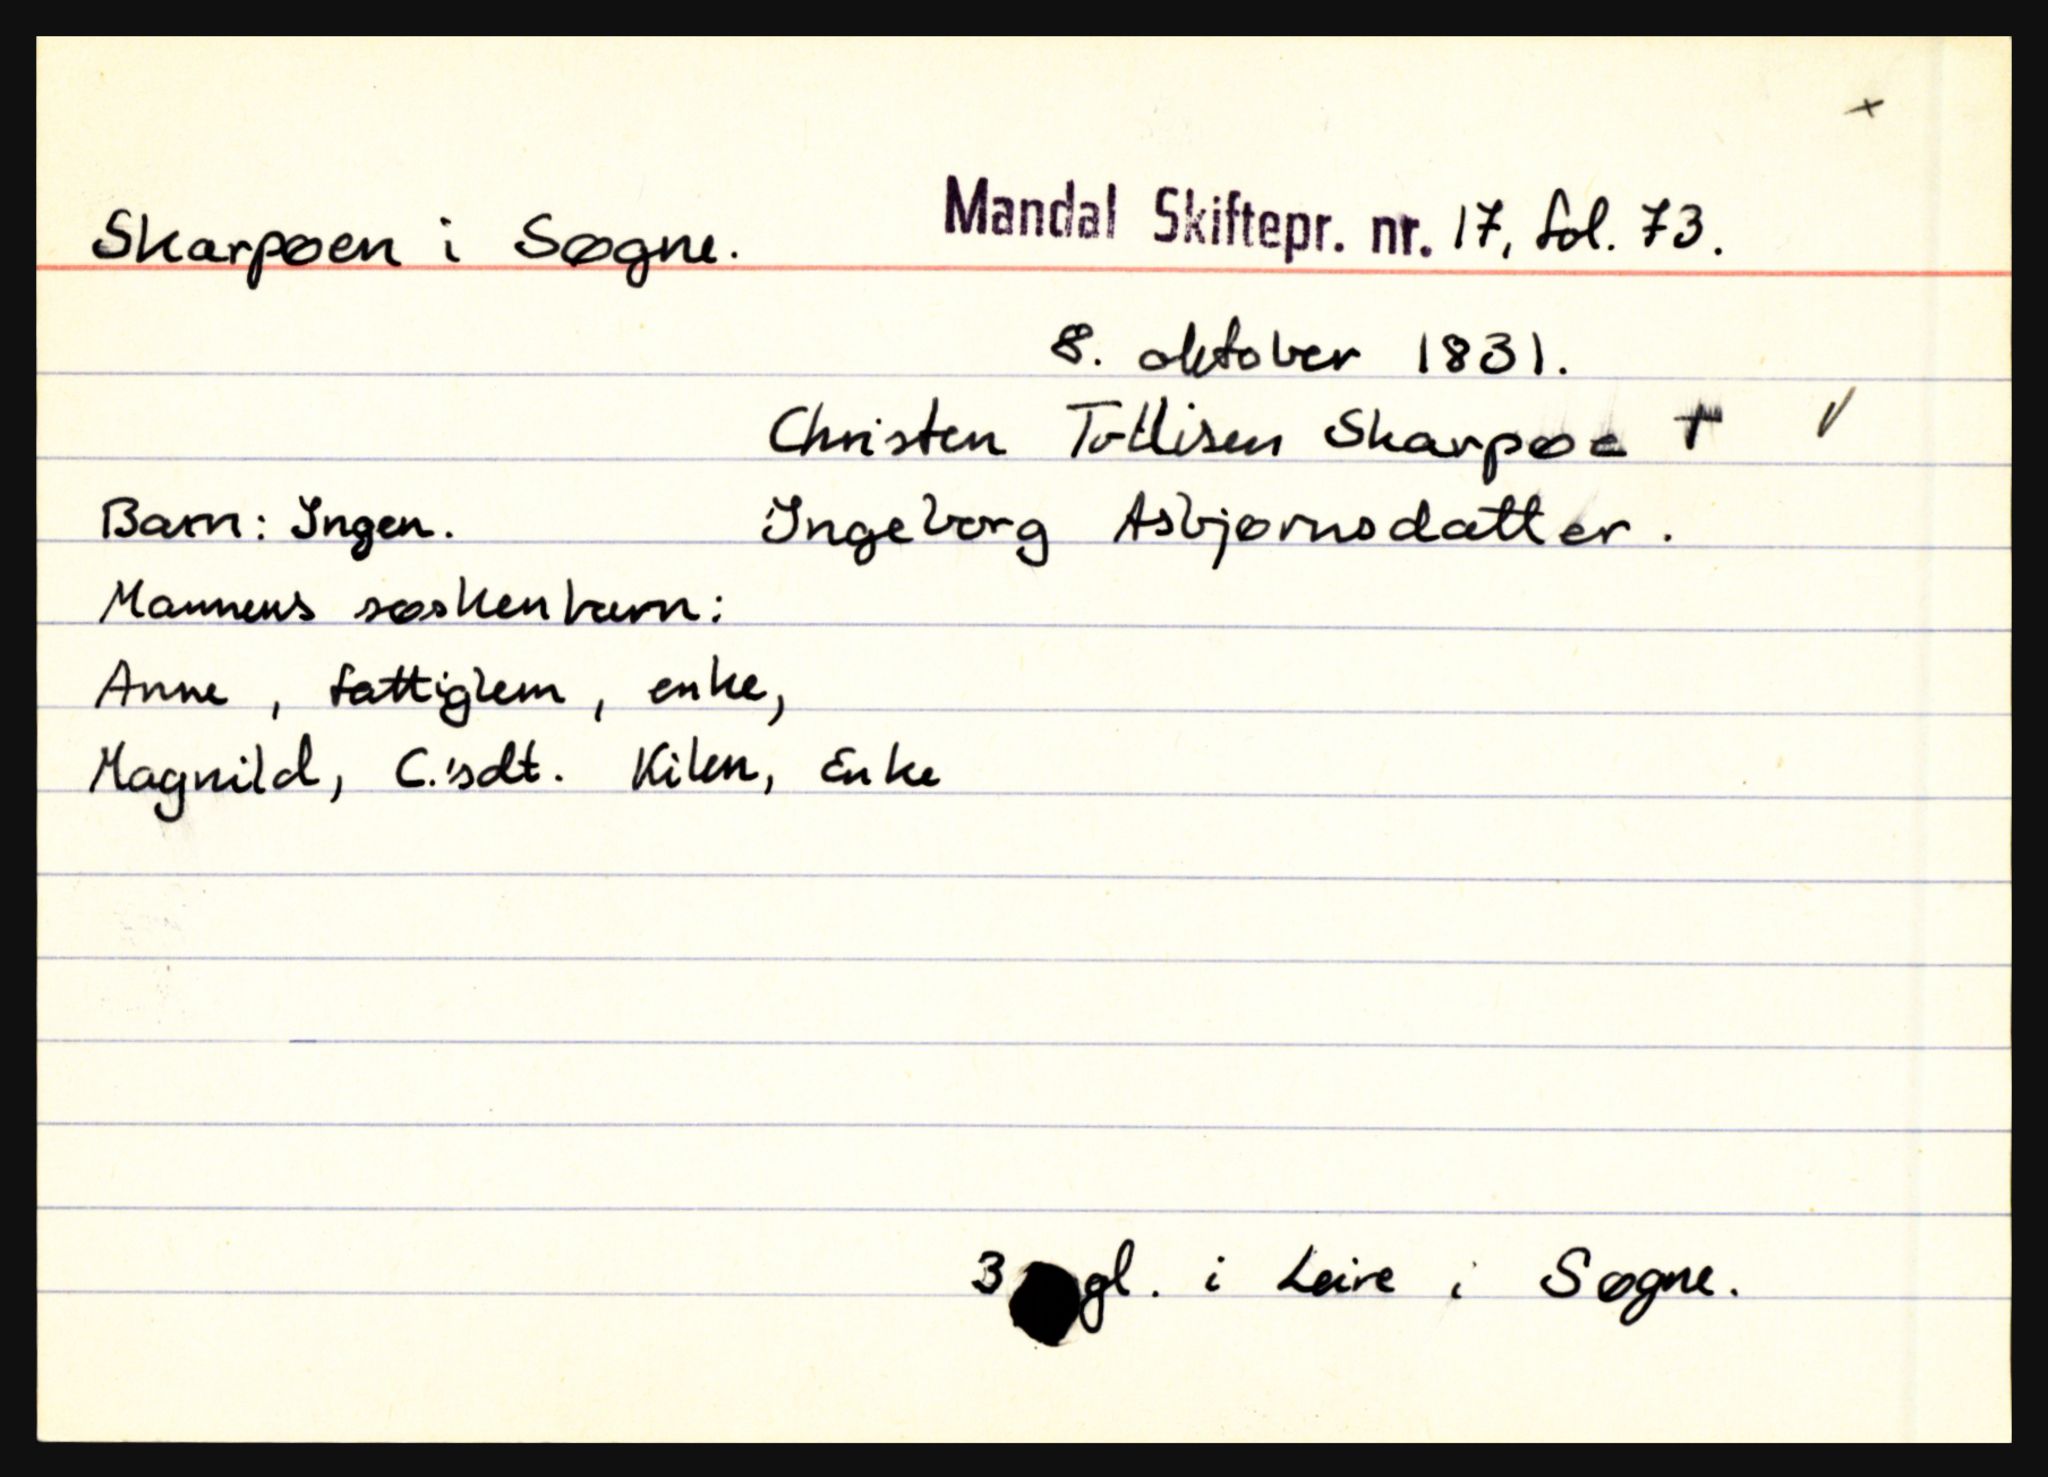 Skarpøen i Søgne. Mandal Skiftepr. nr. 17, fol. 73.
8. oktober 1831.
Christen Tollisen Skarpøe †
Barn: Ingen. Ingeborg Asbjørnsdatter.
Mannens søskenbarn:
Anne , fattiglem , enke,
Magnild, C.'sdt. Kilen, Enke
3 gl. i Leire i Søgne.